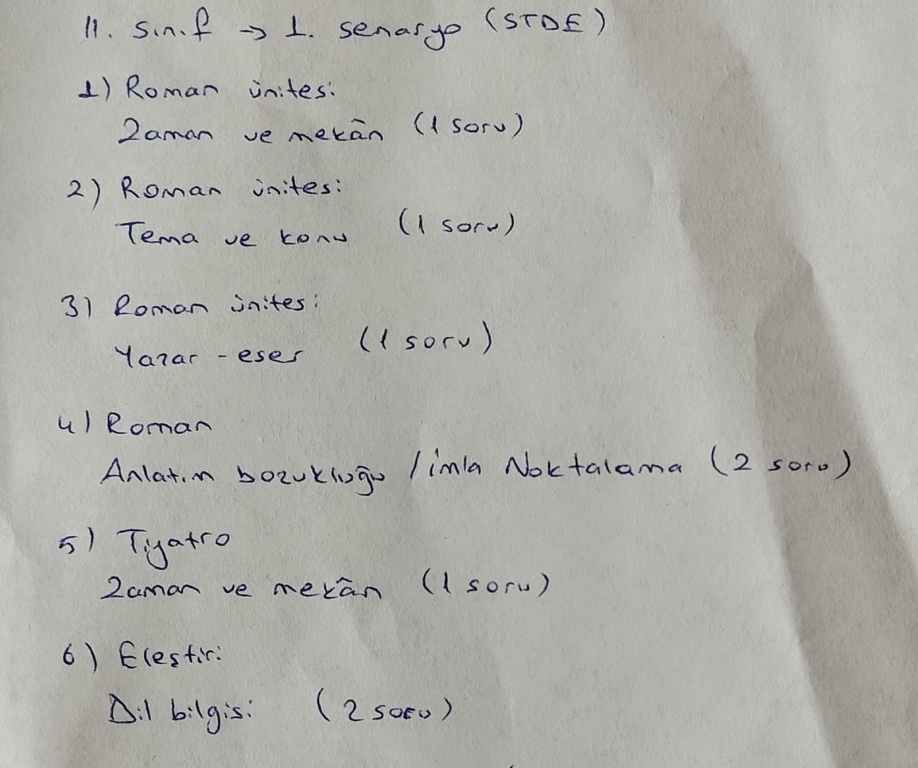 11. sınıf → 1. senaryo (STDE)
1) Roman ünitesi
Zaman ve mekân (1 soru)
2) Roman ünitesi
Tema ve konu (1 soru)
3) Roman ünitesi
Yazar - eser (1 soru)
4) Roman
Anlatım bozukluğu / imla Noktalama (2 soru)
5) Tiyatro
Zaman ve mekân (1 soru)
6) Eleştiri
Dil bilgisi (2 soru)